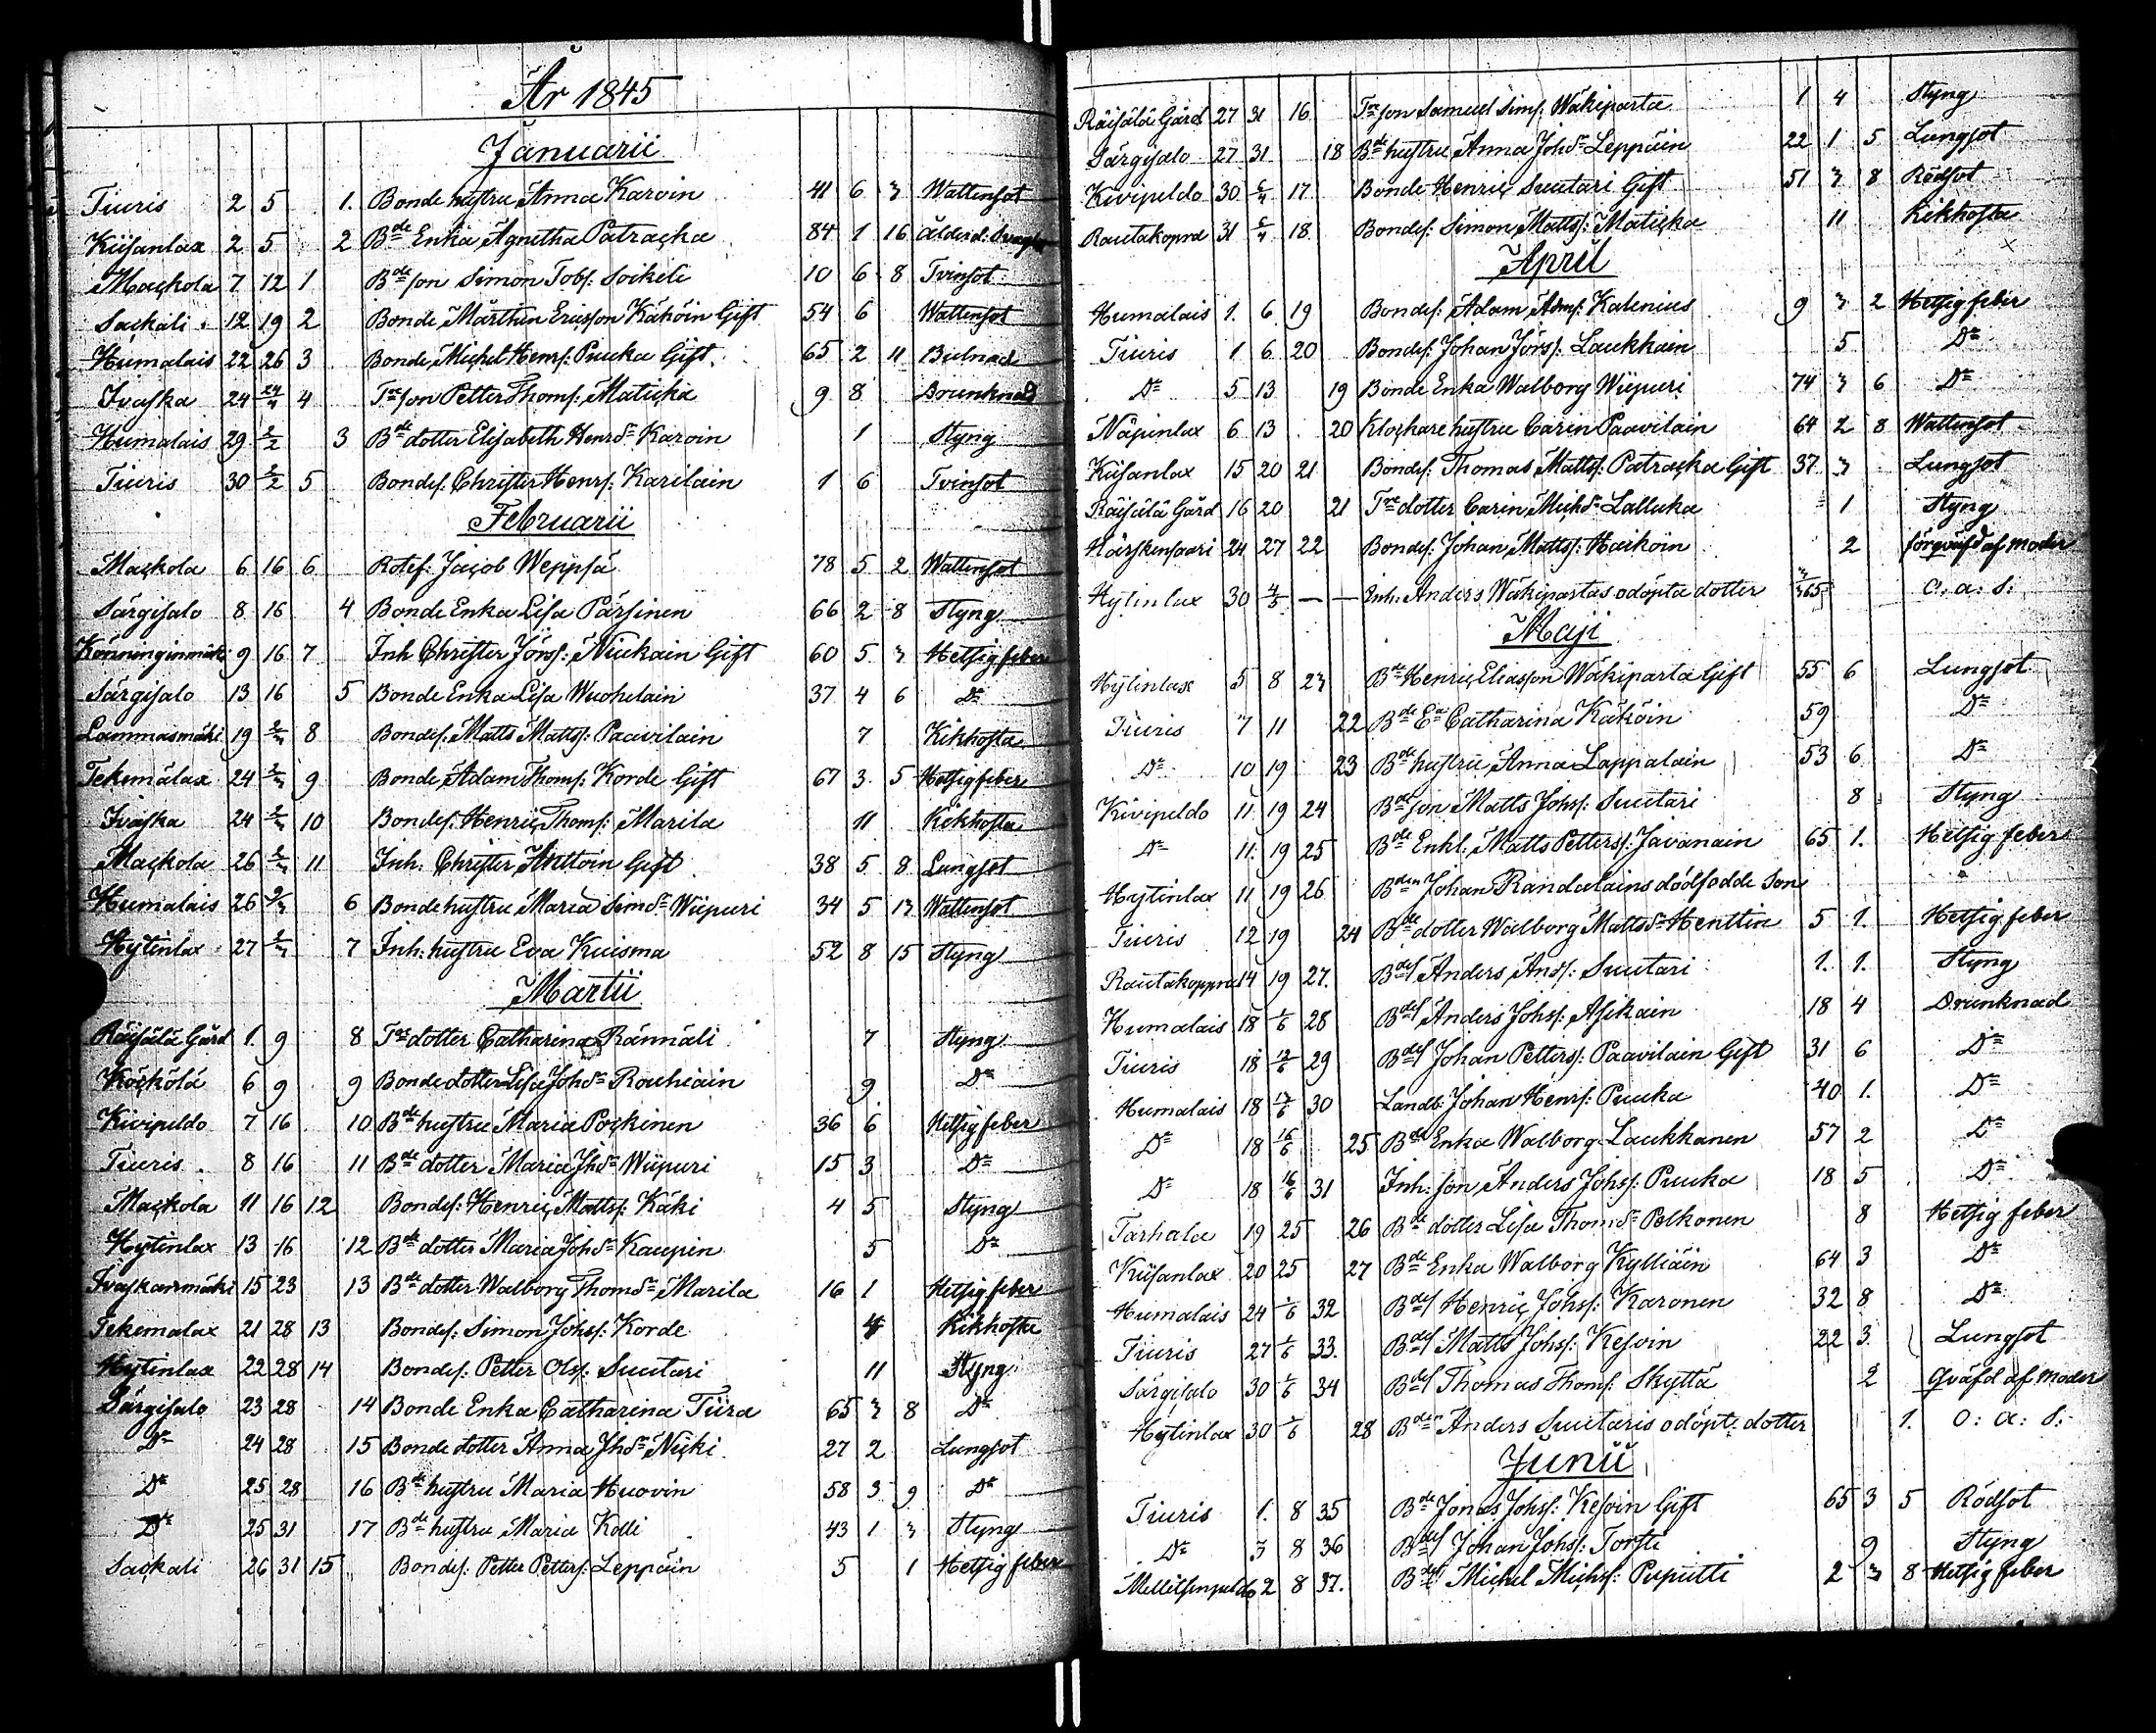 År 1845
Januarii
Tiuris 2 5 1. Bonde hustru Anna Karvin 41 6 3 Wattensot
Kiisanlax 2 5 2 Bde Enka Agnetha Patracka 84 1 16 Ålderd: Svaghet
Mackola 7 12 1 Bde son Simon Tobs: Soikeli 10 6 8 Tvinsot
Sackali 12 19 2 Bonde Mårthen Ericsson Käköin Gift 54 6 Wattensot
Humalais 22 26 3 Bonde Michel Henrs: Puuka Gift 65 2 11 Bulnad
Ivaska 24 4 Tre son Petter Thoms: Maticka 9 8 Drunknad
Humalais 29 2/2 3 Bde dotter Elisabeth Henrsdr Karvin 1 Styng
Tiuris 30 2/2 5 Bondes. Christer Henrs: Karilain 1 6 Tvinsot
Februarii
Mackola 6 16 6 Rotef: Jacob Weppsä 78 5 2 Wattensot
Särgisalo 8 16 4 Bonde Enka Lisa Pärsinen 66 2 8 Styng
Könninginmäki 9 16 7 Inh Christer Jörss: Niukain Gift 60 5 3 Hetsig feber
Särgisalo 13 16 5 Bonde Enka Lisa Wuohelain 37 4 6 Do
Lammasmäki 19 2/3 8 Bondes. Matts Matts: Paavilain 7 Kikhosta
Tekemälax 24 2/3 9 Bonde Adam Thoms: Korde Gift 67 3 5 Hetsig feber
Ivaska 24 2/3 10 Bondes. Henric Thoms: Marila 11 Kikhosta
Mackola 26 2/3 11 Inh: Christer Anttoin Gift 38 5 8 Lungsot
Humalais 26 2/3 6 Bonde hustru Maria Simsdr Wiipuri 34 5 13 Wattensot
Hytinlax 27 2/3 7 Inh: hustru Eva Kuisma 52 8 15 Styng
Martii
Räisälä Gård 1. 9 8 Tre dotter Catharina Rännäli 7 Styng
Köckölä 6 9 9 Bonde dotter Lisa Johsdr Rouhiain 9 Do
Kivipeldo 7 16 10 Bde hustru Maria Pockinen 36 6 Hetsig feber
Tiuris 8 16 11 Bde dotter Maria Jhsdr Wiipuri 15 3 Do
Mackola 11 16 12 Bondes: Henric Matts: Käki 4 5 Styng
Hytinlax 13 16 12 Bde dotter Maria Johsdr Kaupin 5 Do
Ivaskanmäki 15 23 13 Bde dotter Walborg Thomsdr Marila 16 1 Hetsig feber
Tekemalax 21 28 13 Bondes: Simon Johs: Korde 4 Kikhosta
Hytinlax 22 28 14 Bondes: Petter Ols: Suutari 11 Styng
Särgisalo 23 28 14 Bonde Enka Catharina Tiira 65 3 8 Do
Do 24 28 15 Bonde dotter Anna Jhsdr Nicki 27 2 Lungsot
Do 25 28 16 Bde hustru Maria Huovin 58 3 9 Do
Do 25 31 17 Bde hustru Maria Kolli 43 1 3 Styng
Sackali 26 31 15 Bondes: Petter Petters: Leppäin 5 1 Hetsig feber
Räisälä Gård 27 31 16 Tre son Samuel Sims: Wäkiparta 1 4 Styng
Särgisalo 27 31 18 Bde hustru Anna Johsdr Leppäin 22 1 5 Lungsot
Kivipeldo 30 6/4 17 Bonde Henric Suutari Gift 51 3 8 Rödsot
Rautakopra 31 6/4 18 Bondes: Simon Matts: Maticka 11 Kikhosta
April
Humalais 1. 6 19 Bondes: Adam Adms: Kalenius 9 3 2 Hetsig feber
Tiuris 1 6 20 Bondes: Johan Jörs: Laukkain 5 Do
Do 5 13 19 Bonde Enka Walborg Wiipuri 74 3 6 Do
Näpinlax 6 13 20 Klockare hustru Carin Paavilain 64 2 8 Wattensot
Kiisanlax 15 20 21 Bondes: Thomas Matts: Patracka Gift 37 3 Lungsot
Räisälä Gård 16 20 21 Tre dotter Carin Michsdr Lalluka 1 Styng
Härskensaari 24 27 22 Bondes: Johan Matts: Haikoin 2 förqväfd af moder
Hytinlax 30 4/5 — — Inh: Anders Wäkipartas odöpta dotter 3/365 o: a: s:
Maji
Hytinlax 5 8 23 Bde Henric Eliasson Wäkiparta Gift 55 6 Lungsot
Tiuris 7 11 22 Bde Ea Catharina Käköin 59 Do
Do 10 19 23 Bde hustru Anna Lappalain 53 6 Do
Kivipeldo 11 19 24 Bde son Matts Johs: Suutari 8 Styng
Do 11 19 25 Bde Enkl: Matts Petters: Javanain 65 1. Hetsig feber
Hytinlax 11 19 26 Bden Johan Randalains dödfödde Son
Tiuris 12 19 24 Bde dotter Walborg Mattsdr Henttin 5 1. Hetsig feber
Rautakoppra 14 19 27. Bdes Anders Ands: Suutari 1. 1. Styng
Humalais 18 1/6 28 Bdes Anders Johs: Asikain 18 4 Drunknad
Tiuris 18 12/6 29 Bdes Johan Petters: Paavilain Gift 31 6 Do
Humalais 18 30 Landb: Johan Henrs: Puuka 40 1. Do
Do 18 16/6 25 Bde Enka Walborg Laukkanen 57 2 Do
Do 18 16/6 31 Inh: son Anders Johs: Puuka 18 5 Do
Tarhala 19 25 26 Bde dotter Lisa Thomsdr Polkonen 8 Hetsig feber
Kiisanlax 20 25 27 Bde Enka Walborg Kylliäin 64 3 Do
Humalais 24 1/6 32 Bdes Henric Johs: Karonen 32 8 Do
Tiuris 27 1/6 33. Bdes Matts Johs: Kesoin 22 3 Lungsot
Särgisalo 30 1/6 34 Bdes Thomas Thoms: Skyttä 2 Qväfd af moder
Hytinlax 30 1/6 28 Bden Anders Suutaris odöpt: dotter 1. o: a: s:
Junii
Tiuris 1. 8 35 Bde Jonas Johs: Kesoin Gift 65 3 5 Rödsot
Do 3 8 36 Bdes Johan Johs: Torsti 9 Styng
Mellitsinpeldo 2 8 37. Bdes Michel Michs: Puputti 2 3 8 Hetsig feber